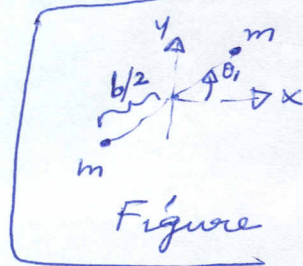 y
m
b/2
θ₁
x
m
Figure